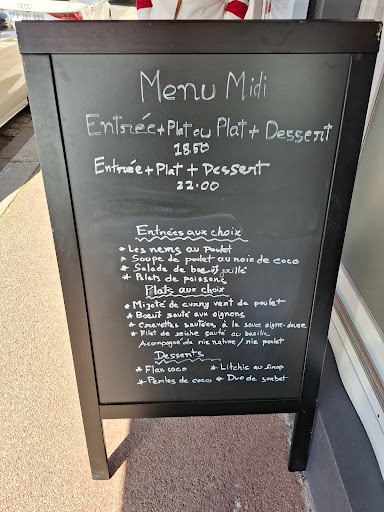 Menu Midi
Entrée + Plat ou Plat + Dessert
18.50
Entrée + Plat + Dessert
22.00
Entrées aux choix
* Les nems au poulet
* Soupe de poulet au noix de coco
* Salade de bœuf grillé
* Palets de poissons
Plats aux choix
* Migoté de curry vert de poulet
* Bœuf sauté aux oignons
* Crevettes sautées à la sauce aigre-douce
* Filet de seiche sauté au basilic
Accompagné de riz nature / riz poulet
Desserts
* Flan coco * Litchis au sirop
* Perles de coco * Duo de sorbet